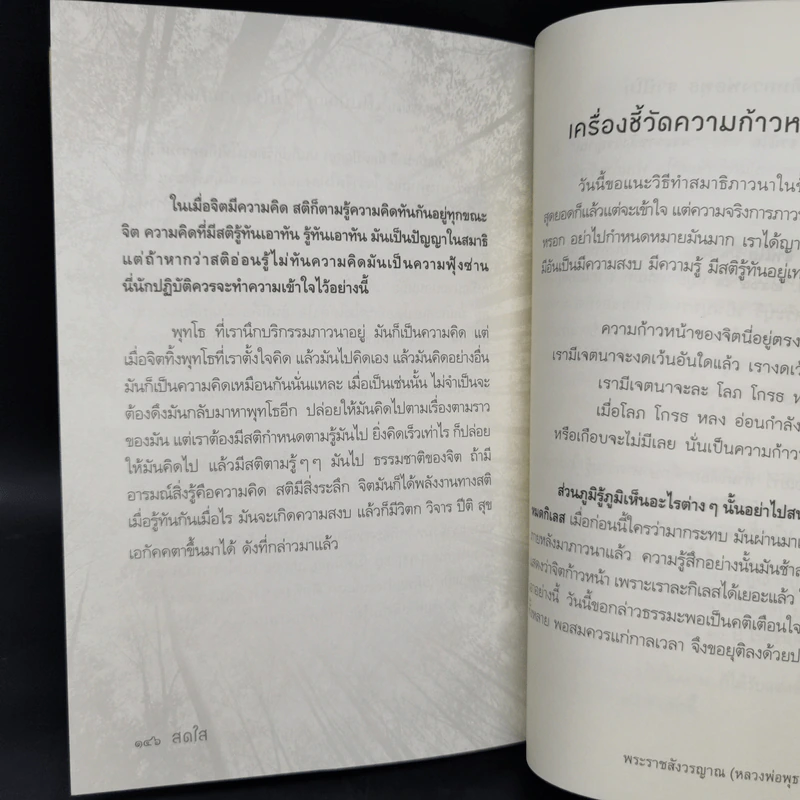 ในเมื่อจิตมีความคิด สติก็ตามรู้ความคิดทันกันอยู่ทุกขณะ
จิต ความคิดที่มีสติรู้ทันเอาทัน รู้ทันเอาทัน มันเป็นปัญญาในสมาธิ
แต่ถ้าหากว่าสติอ่อนรู้ไม่ทันความคิดมันเป็นความฟุ้งซ่าน
นี่นักปฏิบัติควรจะทำความเข้าใจไว้อย่างนี้
พุทโธ ที่เรานึกบริกรรมภาวนาอยู่ มันก็เป็นความคิด แต่
เมื่อจิตทิ้งพุทโธที่เราตั้งใจคิด แล้วมันไปคิดเอง แล้วมันคิดอย่างอื่น
มันก็เป็นความคิดเหมือนกันนั่นแหละ เมื่อเป็นเช่นนั้น ไม่จำเป็นจะ
ต้องดึงมันกลับมาหาพุทโธอีก ปล่อยให้มันคิดไปตามเรื่องตามราว
ของมัน แต่เราต้องมีสติกำหนดตามรู้มันไป ยิ่งคิดเร็วเท่าไร ก็ปล่อย
ให้มันคิดไป แล้วมีสติตามรู้ๆๆ มันไป ธรรมชาติของจิต ถ้ามี
อารมณ์สิ่งรู้คือความคิด สติมีสิ่งระลึก จิตมันก็ได้พลังงานทางสติ
เมื่อรู้ทันกันเมื่อไร มันจะเกิดความสงบ แล้วก็มีวิตก วิจาร ปีติ สุข
เอกัคคตาขึ้นมาได้ ดังที่กล่าวมาแล้ว
๑๔๖ สดใส
เครื่องชี้วัดความก้าวห
วันนี้ขอแนะวิธีทำสมาธิภาวนาใน
สุดยอดก็แล้วแต่จะเข้าใจ แต่ความจริงการภาว
หรอก อย่าไปกำหนดหมายมันมาก เราได้ญา
มีอันเป็นมีความสงบ มีความรู้ มีสติรู้ทันอยู่เท
ความก้าวหน้าของจิตนี่อยู่ตรง
เรามีเจตนาจะงดเว้นอันใดแล้ว เรางดเว้
เรามีเจตนาจะละ โลภ โกรธ ห
เมื่อโลภ โกรธ หลง อ่อนกำลัง
หรือเกือบจะไม่มีเลย นั่นเป็นความก้าว
ส่วนภูมิรู้ภูมิเห็นอะไรต่าง ๆ นั้นอย่าไปส
หมดกิเลส เมื่อก่อนนี้ใครว่ามากระทบ มันผ่านมา
ายหลังมาภาวนาแล้ว ความรู้สึกอย่างนั้นมันช้า
แสดงว่าจิตก้าวหน้า เพราะเราละกิเลสได้เยอะแล้ว
อย่างนี้ วันนี้ขอกล่าวธรรมะพอเป็นคติเตือนใจ
ั้งหลาย พอสมควรแก่กาลเวลา จึงขอยุติลงด้วยป
พระราชสังวรญาณ (หลวงพ่อพุธ